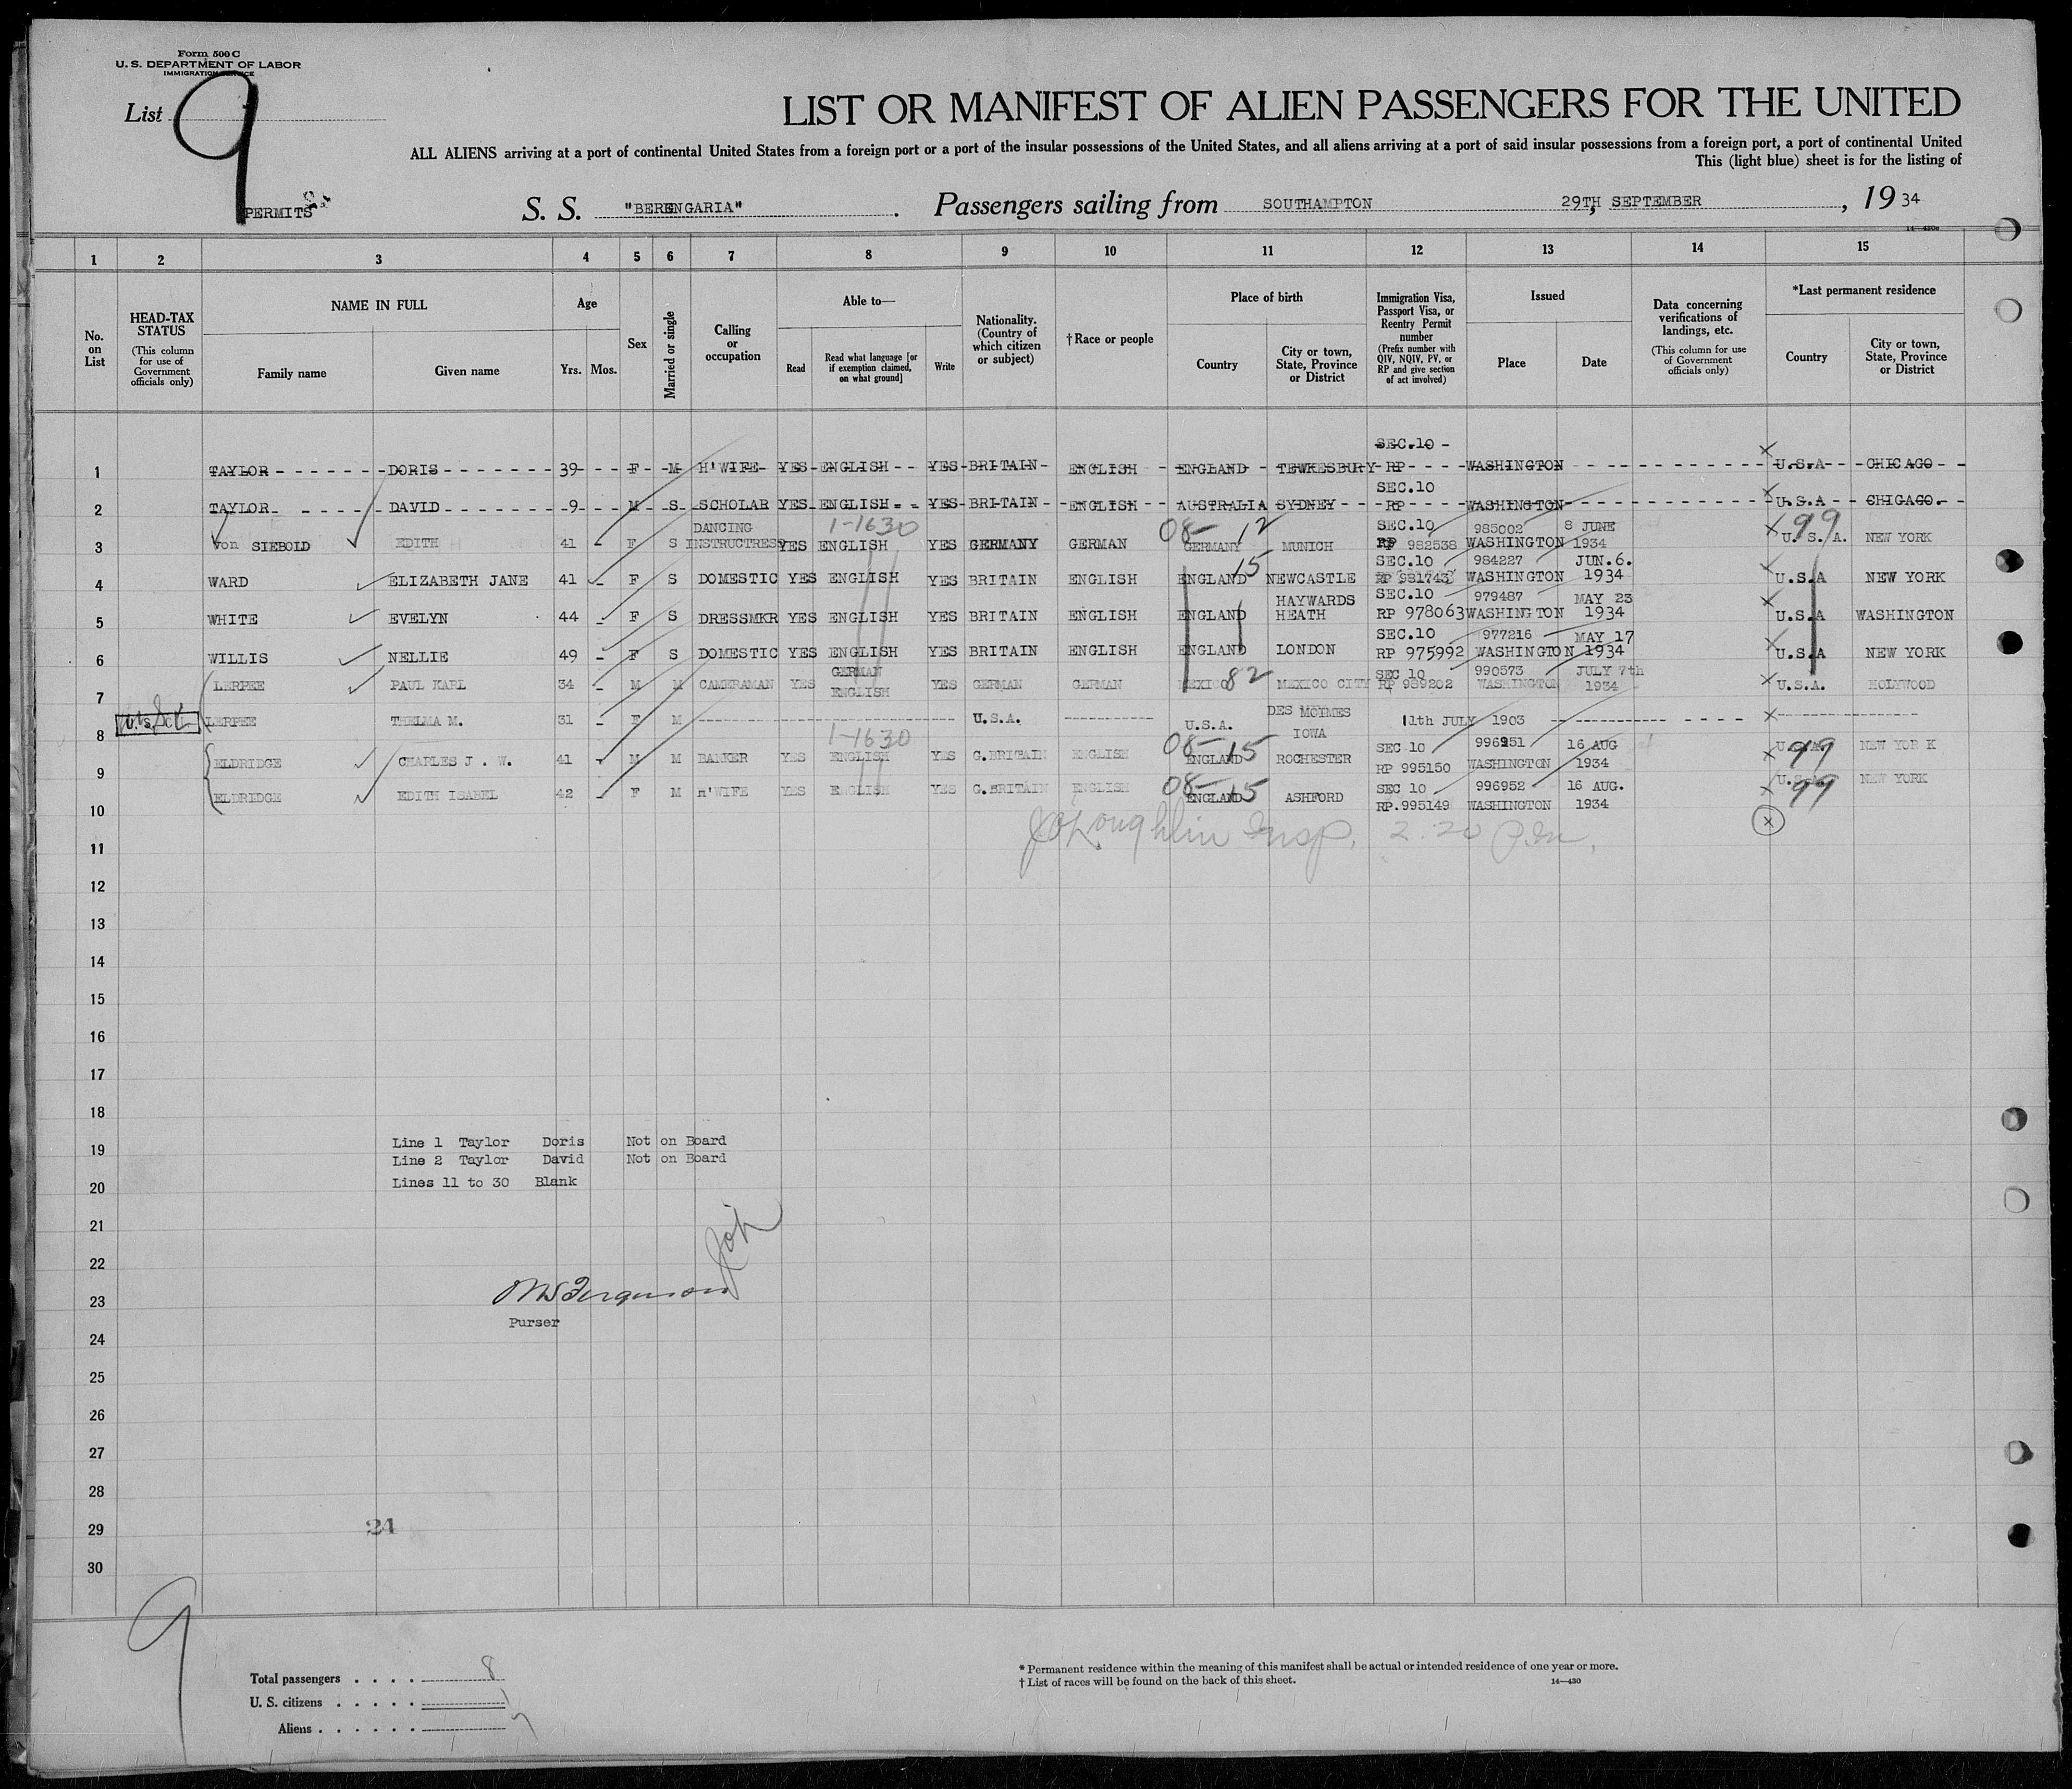 Form 500 C
U. S. DEPARTMENT OF LABOR
IMMIGRATION SERVICE
List 9
PERMITS
LIST OR MANIFEST OF ALIEN PASSENGERS FOR THE UNITED
ALL ALIENS arriving at a port of continental United States from a foreign port or a port of the insular possessions of the United States, and all aliens arriving at a port of said insular possessions from a foreign port, a port of continental United
This (light blue) sheet is for the listing of
S. S. "BERENGARIA" . Passengers sailing from SOUTHAMPTON 29TH SEPTEMBER , 19 34
1 2 3 4 5 6 7 8 9 10 11 12 13 14 15
No. on List
HEAD-TAX STATUS (This column for use of Government officials only)
NAME IN FULL
Family name
Given name
Age
Yrs. Mos.
Sex
Married or single
Calling or occupation
Able to—
Read
Read what language [or if exemption claimed, on what ground]
Write
Nationality. (Country of which citizen or subject)
† Race or people
Place of birth
Country
City or town, State, Province or District
Immigration Visa, Passport Visa, or Reentry Permit number (Prefix number with QIV, NQIV, PV, or RP and give section of act involved)
Issued
Place
Date
Data concerning verifications of landings, etc. (This column for use of Government officials only)
*Last permanent residence
Country
City or town, State, Province or District
1 TAYLOR DORIS 39 F M H'WIFE YES ENGLISH YES BRITAIN ENGLISH ENGLAND TEWKESBURY SEC.10 RP WASHINGTON U.S.A CHICAGO
2 TAYLOR DAVID 9 M S SCHOLAR YES ENGLISH YES BRITAIN ENGLISH AUSTRALIA SYDNEY SEC.10 RP WASHINGTON U.S.A CHICAGO.
3 von SIEBOLD EDITH 41 F S DANCING INSTRUCTRESS YES ENGLISH 1-1630 YES GERMANY GERMAN 08- 12 GERMANY MUNICH SEC.10 RP 982538 985002 WASHINGTON 8 JUNE 1934 99 U.S.A. NEW YORK
4 WARD ELIZABETH JANE 41 F S DOMESTIC YES ENGLISH YES BRITAIN ENGLISH ENGLAND 15 NEWCASTLE SEC.10 RP 981743 984227 WASHINGTON JUN.6. 1934 U.S.A NEW YORK
5 WHITE EVELYN 44 F S DRESSMKR YES ENGLISH YES BRITAIN ENGLISH ENGLAND HAYWARDS HEATH SEC.10 RP 978063 979487 WASHINGTON MAY 23 1934 U.S.A WASHINGTON
6 WILLIS NELLIE 49 F S DOMESTIC YES ENGLISH YES BRITAIN ENGLISH ENGLAND LONDON SEC.10 RP 975992 977216 WASHINGTON MAY 17 1934 U.S.A NEW YORK
7 LERPEE PAUL KARL 34 M M CAMERAMAN YES GERMAN ENGLISH YES GERMAN GERMAN MEXICO 82 MEXICO CITY SEC 10 RP 989202 990573 WASHINGTON JULY 7th 1934 U.S.A. HOLYWOOD
8 LERPEE THELMA M. 31 F M U.S.A. U.S.A. DES MOIMES IOWA 11th JULY 1903
9 ELDRIDGE CHARLES J . W. 41 M M BANKER YES ENGLISH 1-1630 YES G.BRITAIN ENGLISH 08- 15 ENGLAND ROCHESTER SEC 10 RP 995150 996951 WASHINGTON 16 AUG 1934 U.S.A. 99 NEW YORK
10 ELDRIDGE EDITH ISABEL 42 F M H'WIFE YES ENGLISH YES G.BRITAIN ENGLISH 08- 15 ENGLAND ASHFORD SEC 10 RP.995149 996952 WASHINGTON 16 AUG. 1934 U.S.A. 99 NEW YORK
J O'Loughlin Insp. 2.20 P.M.
11
12
13
14
15
16
17
18
19 Line 1 Taylor Doris Not on Board
Line 2 Taylor David Not on Board
20 Lines 11 to 30 Blank
21
22
23 Ferguson
Purser
24
25
26
27
28
29 24
30
9
Total passengers . . . . 8
U. S. citizens . . . . . 1
Aliens . . . . . . 7
* Permanent residence within the meaning of this manifest shall be actual or intended residence of one year or more.
† List of races will be found on the back of this sheet.
14—430